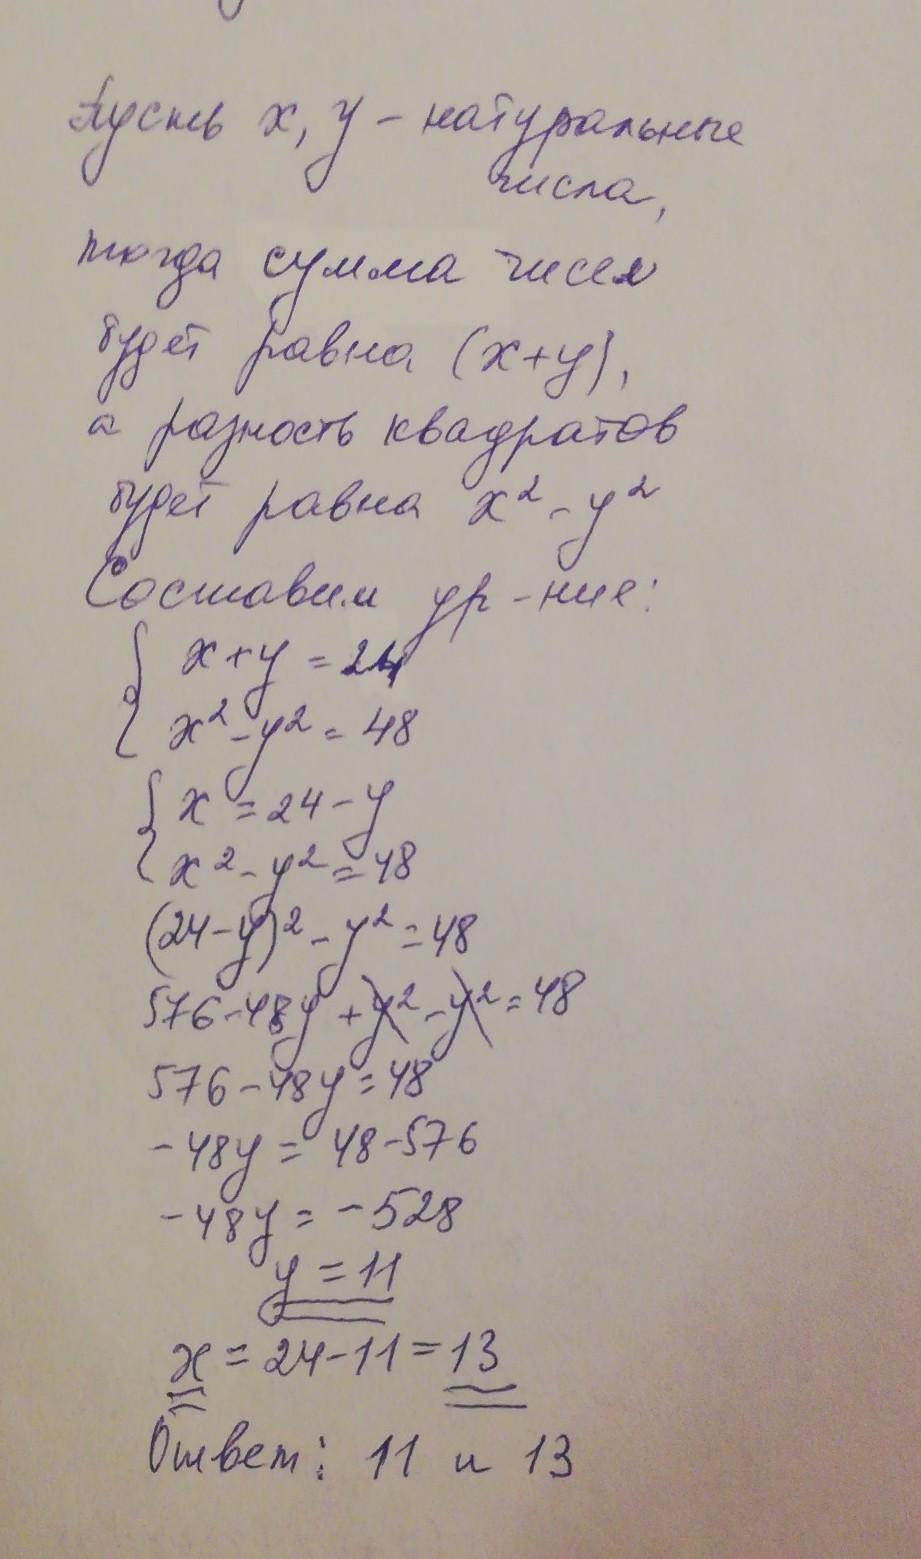 Пусть x, y - натуральные
числа,
тогда сумма чисел
будет равна (x+y),
а разность квадратов
будет равна x² - y²
Составим ур-ние:
{ x+y = 24
x² - y² = 48
{ x = 24 - y
x² - y² = 48
(24-y)² - y² = 48
576 - 48y + y² - y² = 48
576 - 48y = 48
- 48y = 48 - 576
- 48y = - 528
y = 11
x = 24 - 11 = 13
Ответ: 11 и 13